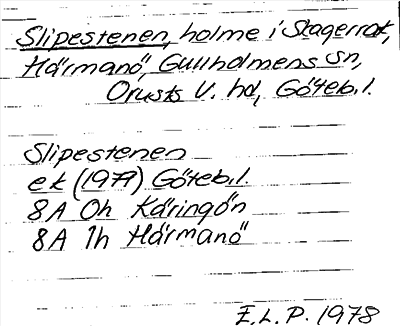 Slipestenen, holme i Skagerrak,
Härmanö, Gullholmens sn,
Orusts V. hd, Göteb. l.
Slipestenen
ek (1979) Göteb. l.
8A 0h Käringön
8A 1h Härmanö
E.L.P. 1978